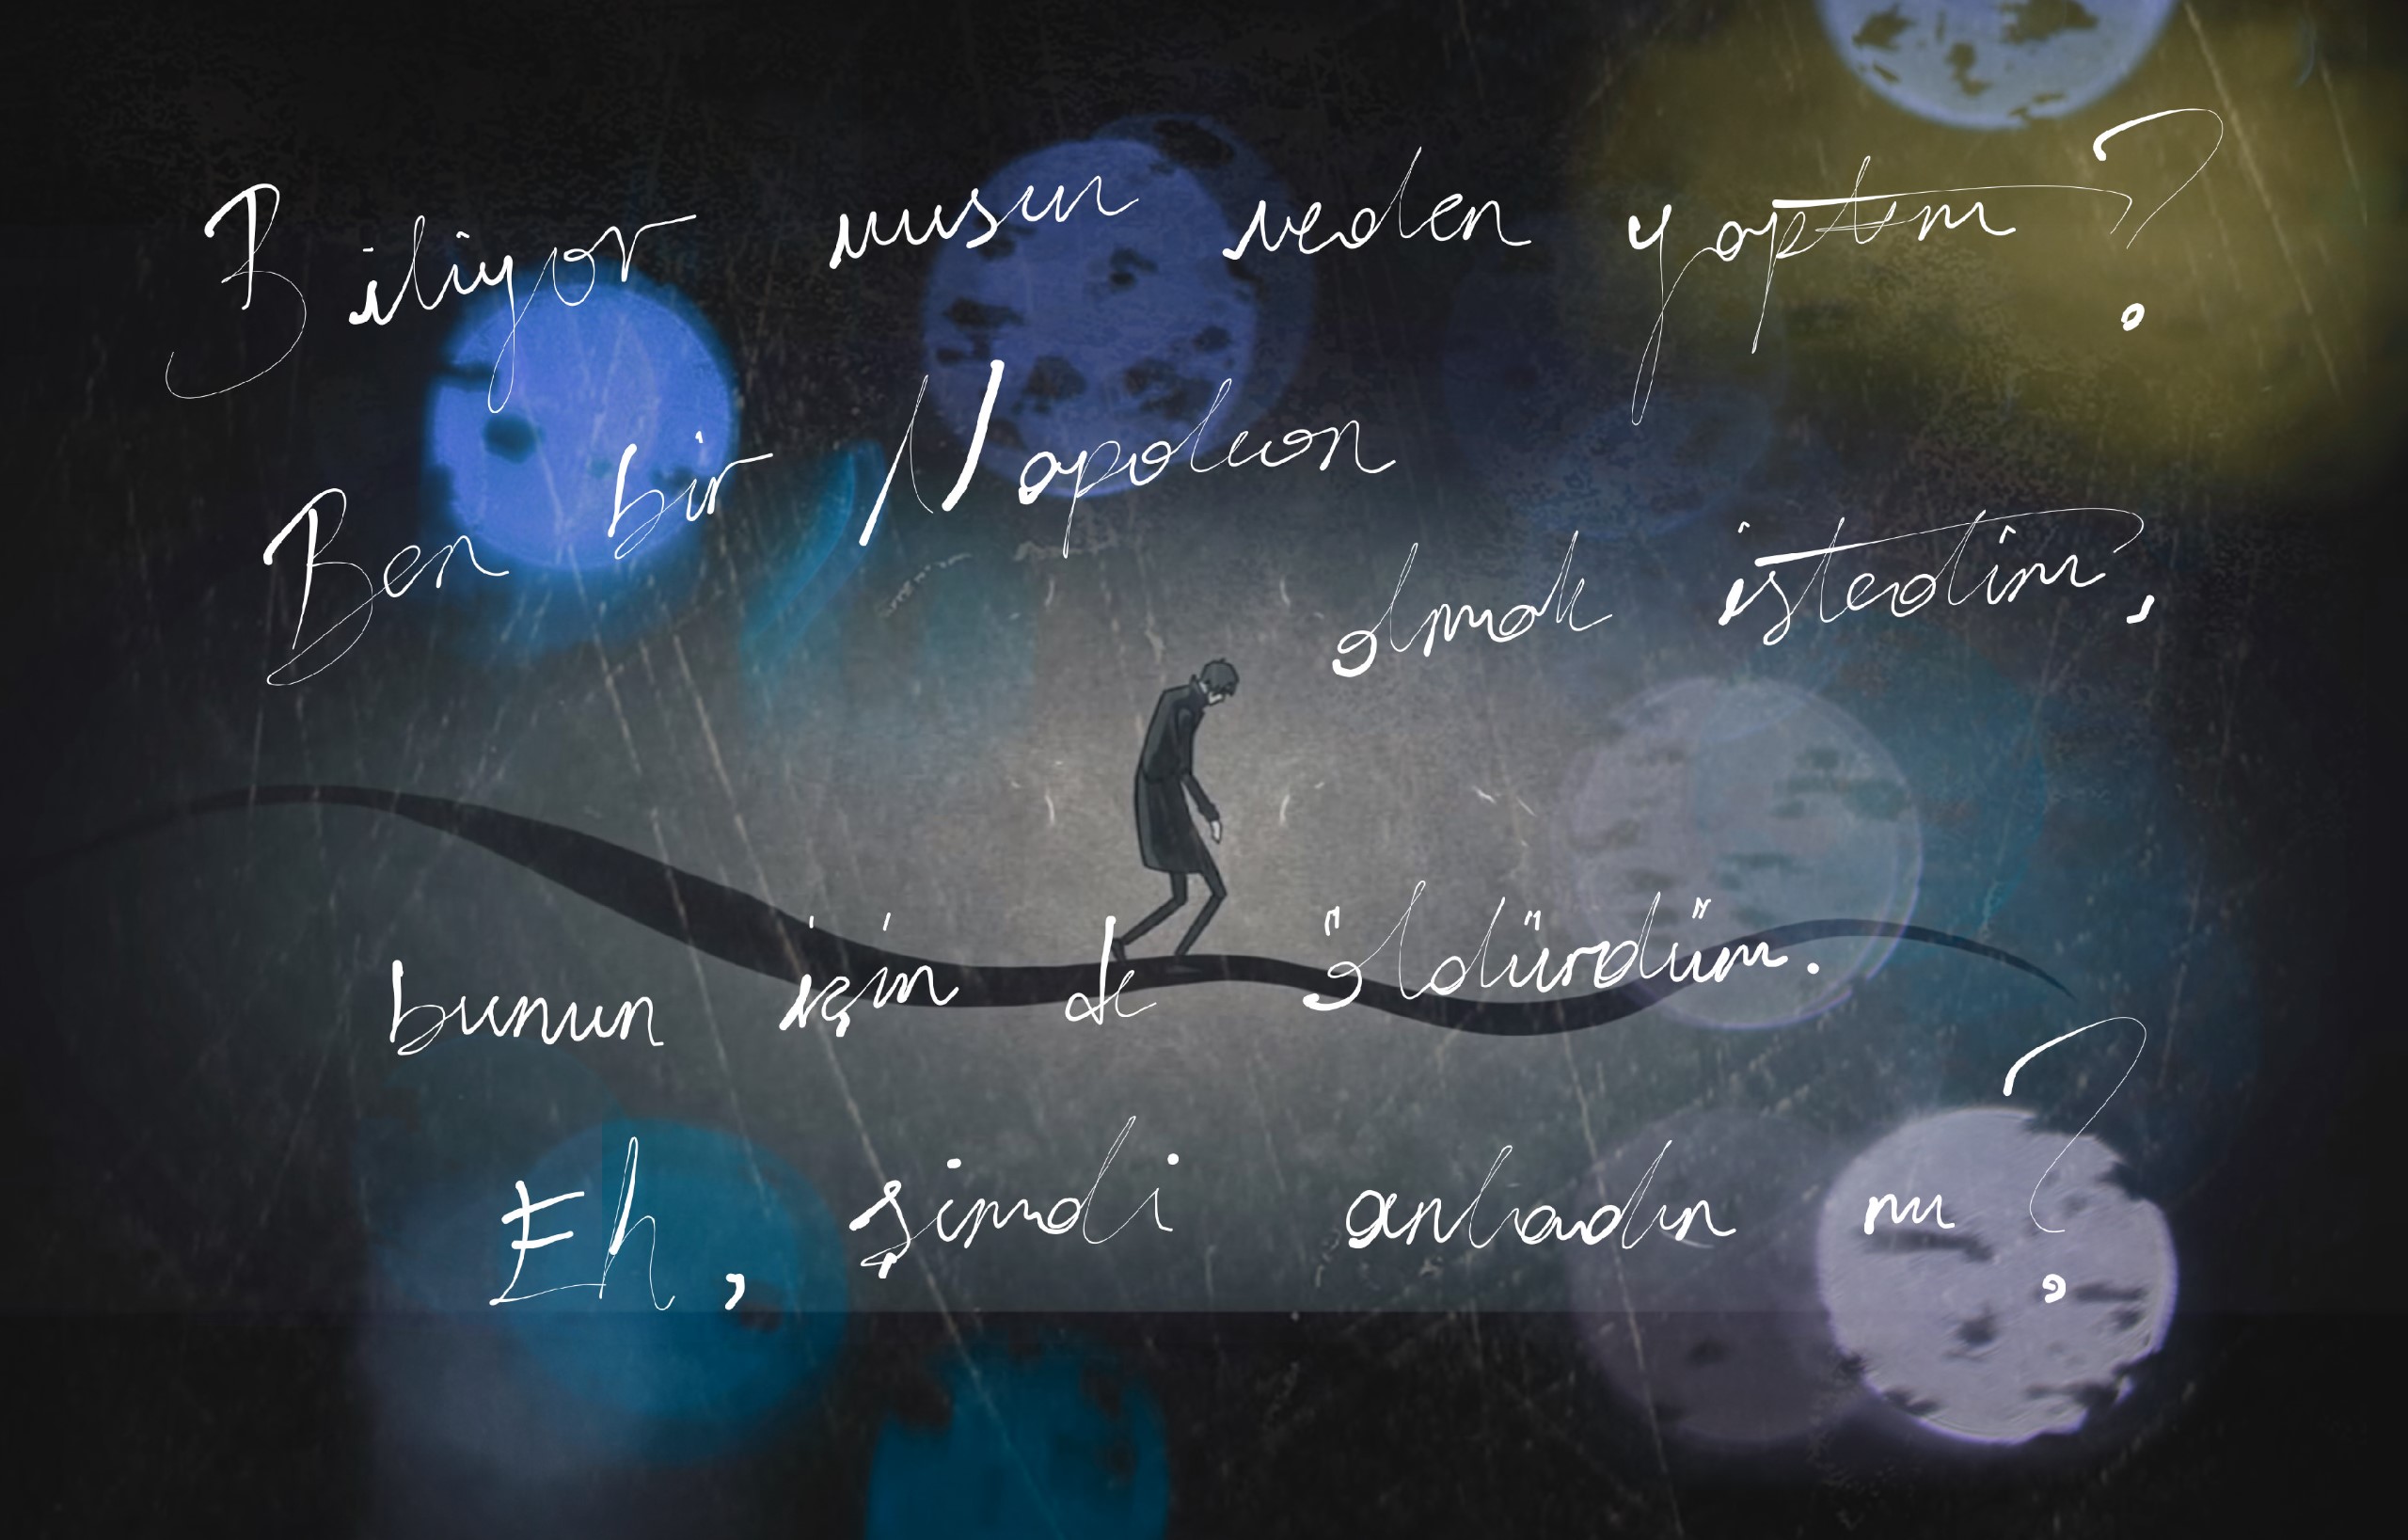 Biliyor musun neden yaptım?
Ben bir Napoleon
olmak istedim,
bunun için de öldürdüm.
Eh, şimdi anladın mı?